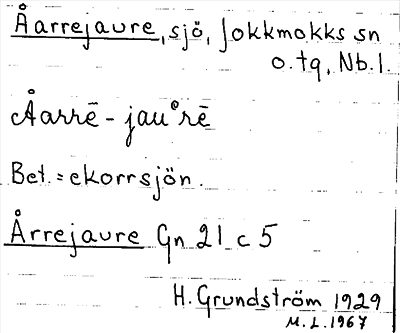 Åarrejaure, sjö, Jokkmokks sn
o. tg, Nb. l.
Åarrē - jauᵒrē
Bet. = ekorrsjön.
Årrejaure Gn 21 c 5
H. Grundström 1929
M. L. 1967